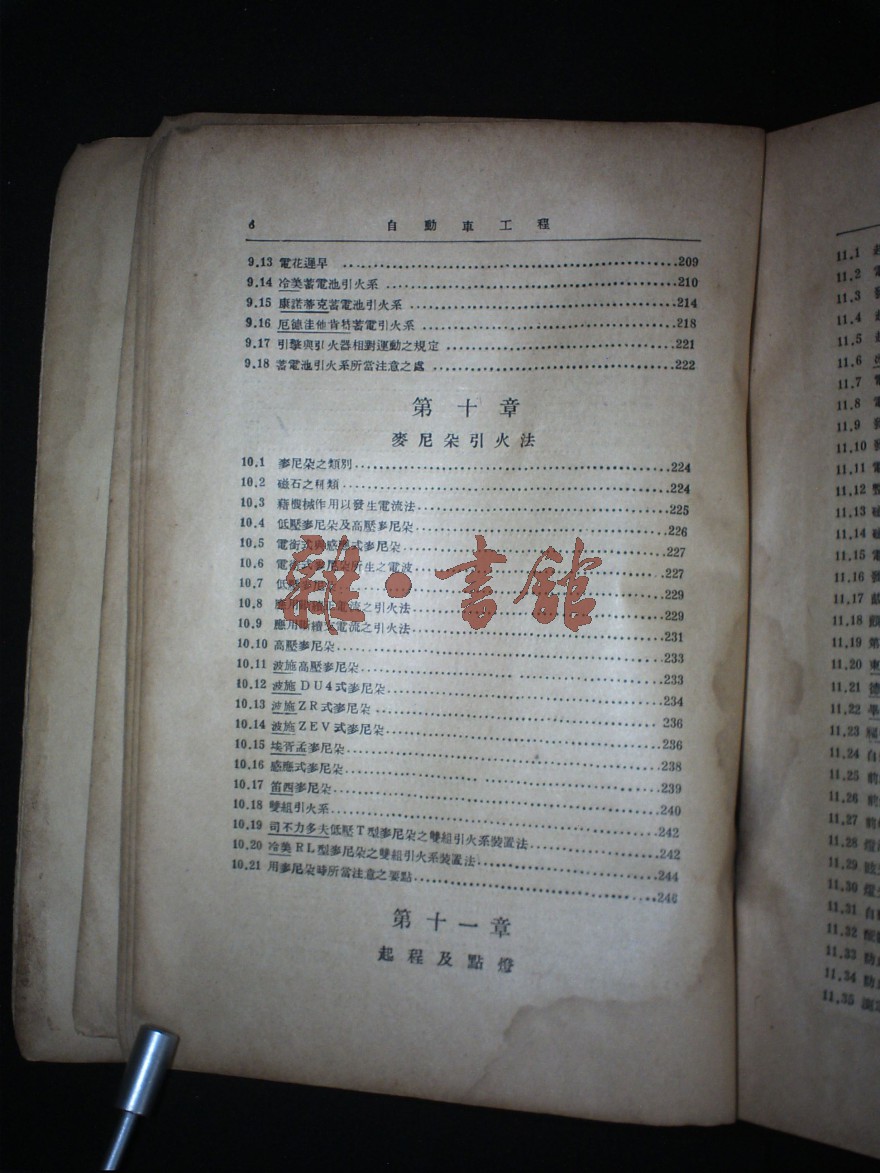 6 自動車工程
9.13 電花遲早 209
9.14 冷美蓄電池引火系 210
9.15 康諾蒂克蓄電池引火系 214
9.16 厄德圭他肯特蓄電引火系 218
9.17 引擎與引火器相對運動之規定 221
9.18 蓄電池引火系所當注意之處 222
第十章
麥尼朵引火法
10.1 麥尼朵之類別 224
10.2 磁石之種類 224
10.3 藉機械作用以發生電流法 225
10.4 低壓麥尼朵及高壓麥尼朵 226
10.5 電衝式與感應式麥尼朵 227
10.6 電衝式麥尼朵所生之電波 227
10.7 低壓 229
10.8 應用 電流之引火法 229
10.9 應用斷續交電流之引火法 231
10.10 高壓麥尼朵 233
10.11 波施高壓麥尼朵 233
10.12 波施DU4式麥尼朵 234
10.13 波施ZR式麥尼朵 236
10.14 波施ZEV式麥尼朵 236
10.15 埃胥孟麥尼朵 238
10.16 感應式麥尼朵 239
10.17 笛西麥尼朵 240
10.18 雙組引火系 242
10.19 司不力多夫低壓T型麥尼朵之雙組引火系裝置法 242
10.20 冷美RL型麥尼朵之雙組引火系裝置法 244
10.21 用麥尼朵時所當注意之要點 246
第十一章
起程及點燈
雜·書館
11.1
11.2 電
11.3 發
11.4
11.5
11.6
11.7 電
11.8 電
11.9 發
11.10 發
11.11 電
11.12 整
11.13 磁
11.14 磁
11.15 電
11.16 發
11.17
11.18
11.19 第
11.20 東
11.21 德
11.22
11.23
11.24 自
11.25 前
11.26 前
11.27 前
11.28 燈
11.29
11.30 燈
11.31 自
11.32 配
11.33 防
11.34 防
11.35 測